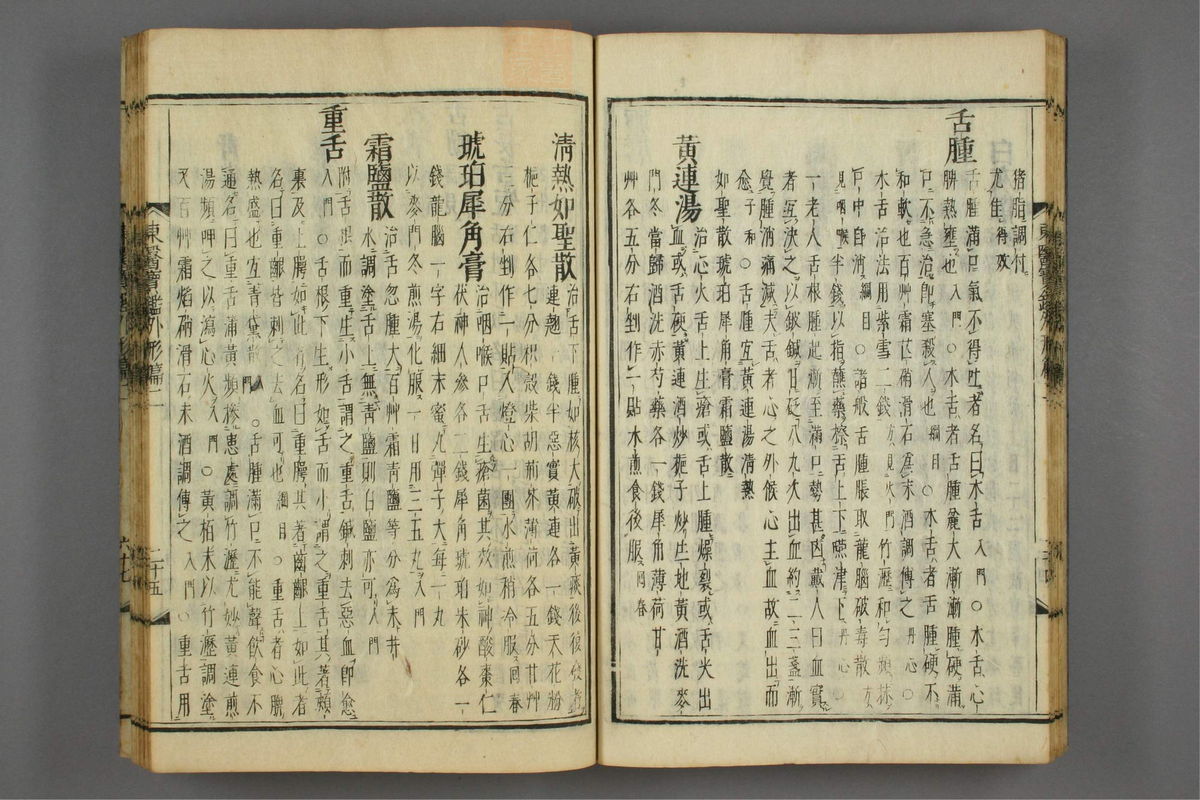 猪脂調付
尤佳得效
舌腫
舌腫滿口氣不得吐者名曰木舌入門○木舌心
脾熱壅也入門○木舌者舌腫麤大漸漸腫硬滿
口不急治卽塞殺人也綱目○木舌者舌腫硬不
和軟也百艸霜芒硝滑石爲末酒調傅之丹心○
木舌治法用紫雪二錢方見火門竹瀝和勻頻抹
口中自消綱目○諸般舌腫脹取龍腦破毒散方
見咽喉半錢以指蘸藥擦舌上下嚥津下丹心○
一老人舌根腫起漸至滿口勢甚凶戴人曰血實
者宜決之以鈹鍼日砭八九次出血約二三盞漸
覺腫消痛減夫舌者心之外候心主血故血出而
愈子和○舌腫宜黃連湯淸熱
如聖散琥珀犀角膏霜鹽散
黃連湯
治心火舌上生瘡或舌上腫燥裂或舌尖出
血或舌硬黃連酒炒梔子炒生地黃酒洗麥
門冬當歸酒洗赤芍藥各一錢犀角薄荷甘
艸各五分右剉作一貼水煎食後服回春
淸熱如聖散
治舌下腫如核大破出黃痰後復發
連翹一錢半惡實黃連各一錢天花粉
梔子仁各七分枳殼柴胡荊芥薄荷各五分甘艸
三分右剉作一貼入燈心一團水煎稍冷服回春
琥珀犀角膏
治咽喉口舌生瘡菌其效如神酸棗仁
茯神人參各二錢犀角琥珀朱砂各一
錢龍腦一字右細末蜜丸彈子大每一丸
以麥門冬煎湯化服一日用三五丸入門
霜鹽散
治舌忽腫大百艸霜靑鹽等分爲末井
水調塗舌上無靑鹽則白鹽亦可入門
重舌
附舌根而重生小舌謂之重舌鍼刺去惡血卽愈
入門○舌根下生形如舌而小謂之重舌其著頰
裏及上腭如此者名曰重腭其著齒齦上如此者
名曰重齦皆刺去血可也綱目○重舌者心脾
熱盛也宜靑黛散入門○舌腫滿口不能聲飮食不
通名曰重舌蒲黃頻摻患處調竹瀝尤妙黃連煎
湯頻呷之以瀉心火入門○黃栢末以竹瀝調塗
又百艸霜焰硝滑石末酒調傅之入門○重舌用
東醫寶鑑外形篇二
二十五